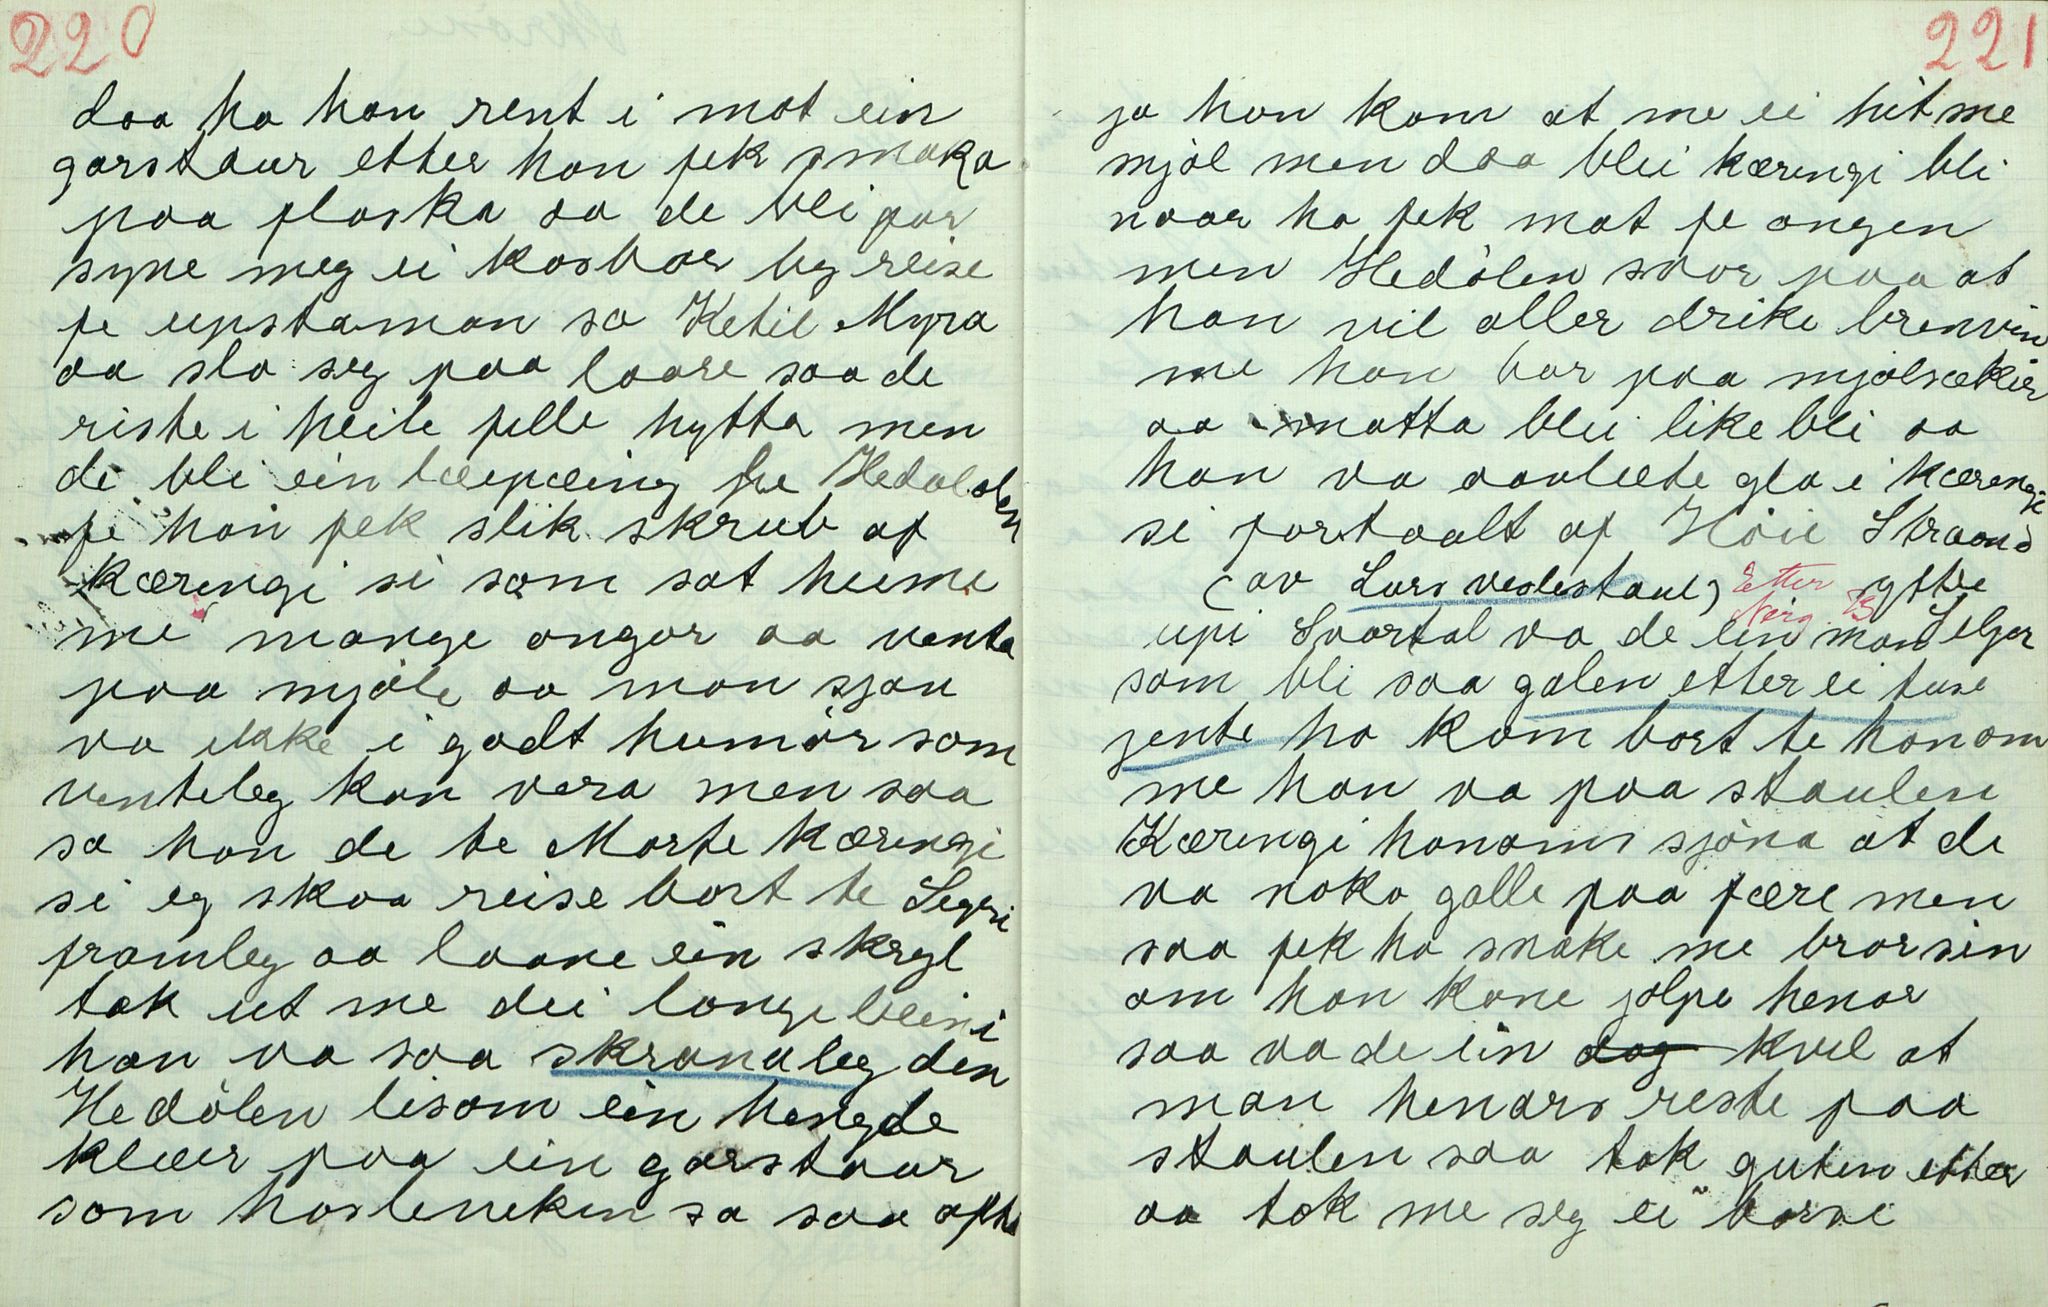 220
daa ha han rent i mot ein
garstaur etter han fek smaka
paa flaska aa de bli par
syne meg ei kosbar by reise
fe upstaman sa Ketil Myra
aa slo seg paa laare saa de
riste i heile fille hytta men
de bli ein læupæing fre Hedalolen
fe han fek slik skrub af
kæringi si som sat heime
me mange ongar aa venta
paa mjøle aa man sjøn
va ikke i godt humør som
venteleg kan vera men saa
sa han de te Marte kæringi
si eg skaa reise bort te Segri
framleg aa laane ein skrgl
tok ut me dei longe beini
han va saa skranaleg den
Hedølen lisom ein hengde
klær paa ein garstaur
som hosleneken sa saa ofte
221
jo han kom at me ei hit me
mjøl men daa blei kæringi bli
naar ho fek mat fe ongen
men Hedølen svor paa at
han vil aller drike brenvin
me han bar paa mjølsækier
aa matta blei like bli aa
han va aavlete gla i kæringe
si fortaalt af Høie Straand
(av Lars veslestaul) Etter gfke
Norig 13
upi Svartdal va de ein man Seljor
som bli saa galen etter ei tuse
jente ho kom bort te honom
me han va paa staulen
Kæringi honoms sjøna at de
va noko galle paa fære men
saa fek ho snake me bror sin
om han kone jølpe henar
saa va de ein dag kvel at
man henars reste paa
staulen saa tok guten etter
aa tok me seg ei børse